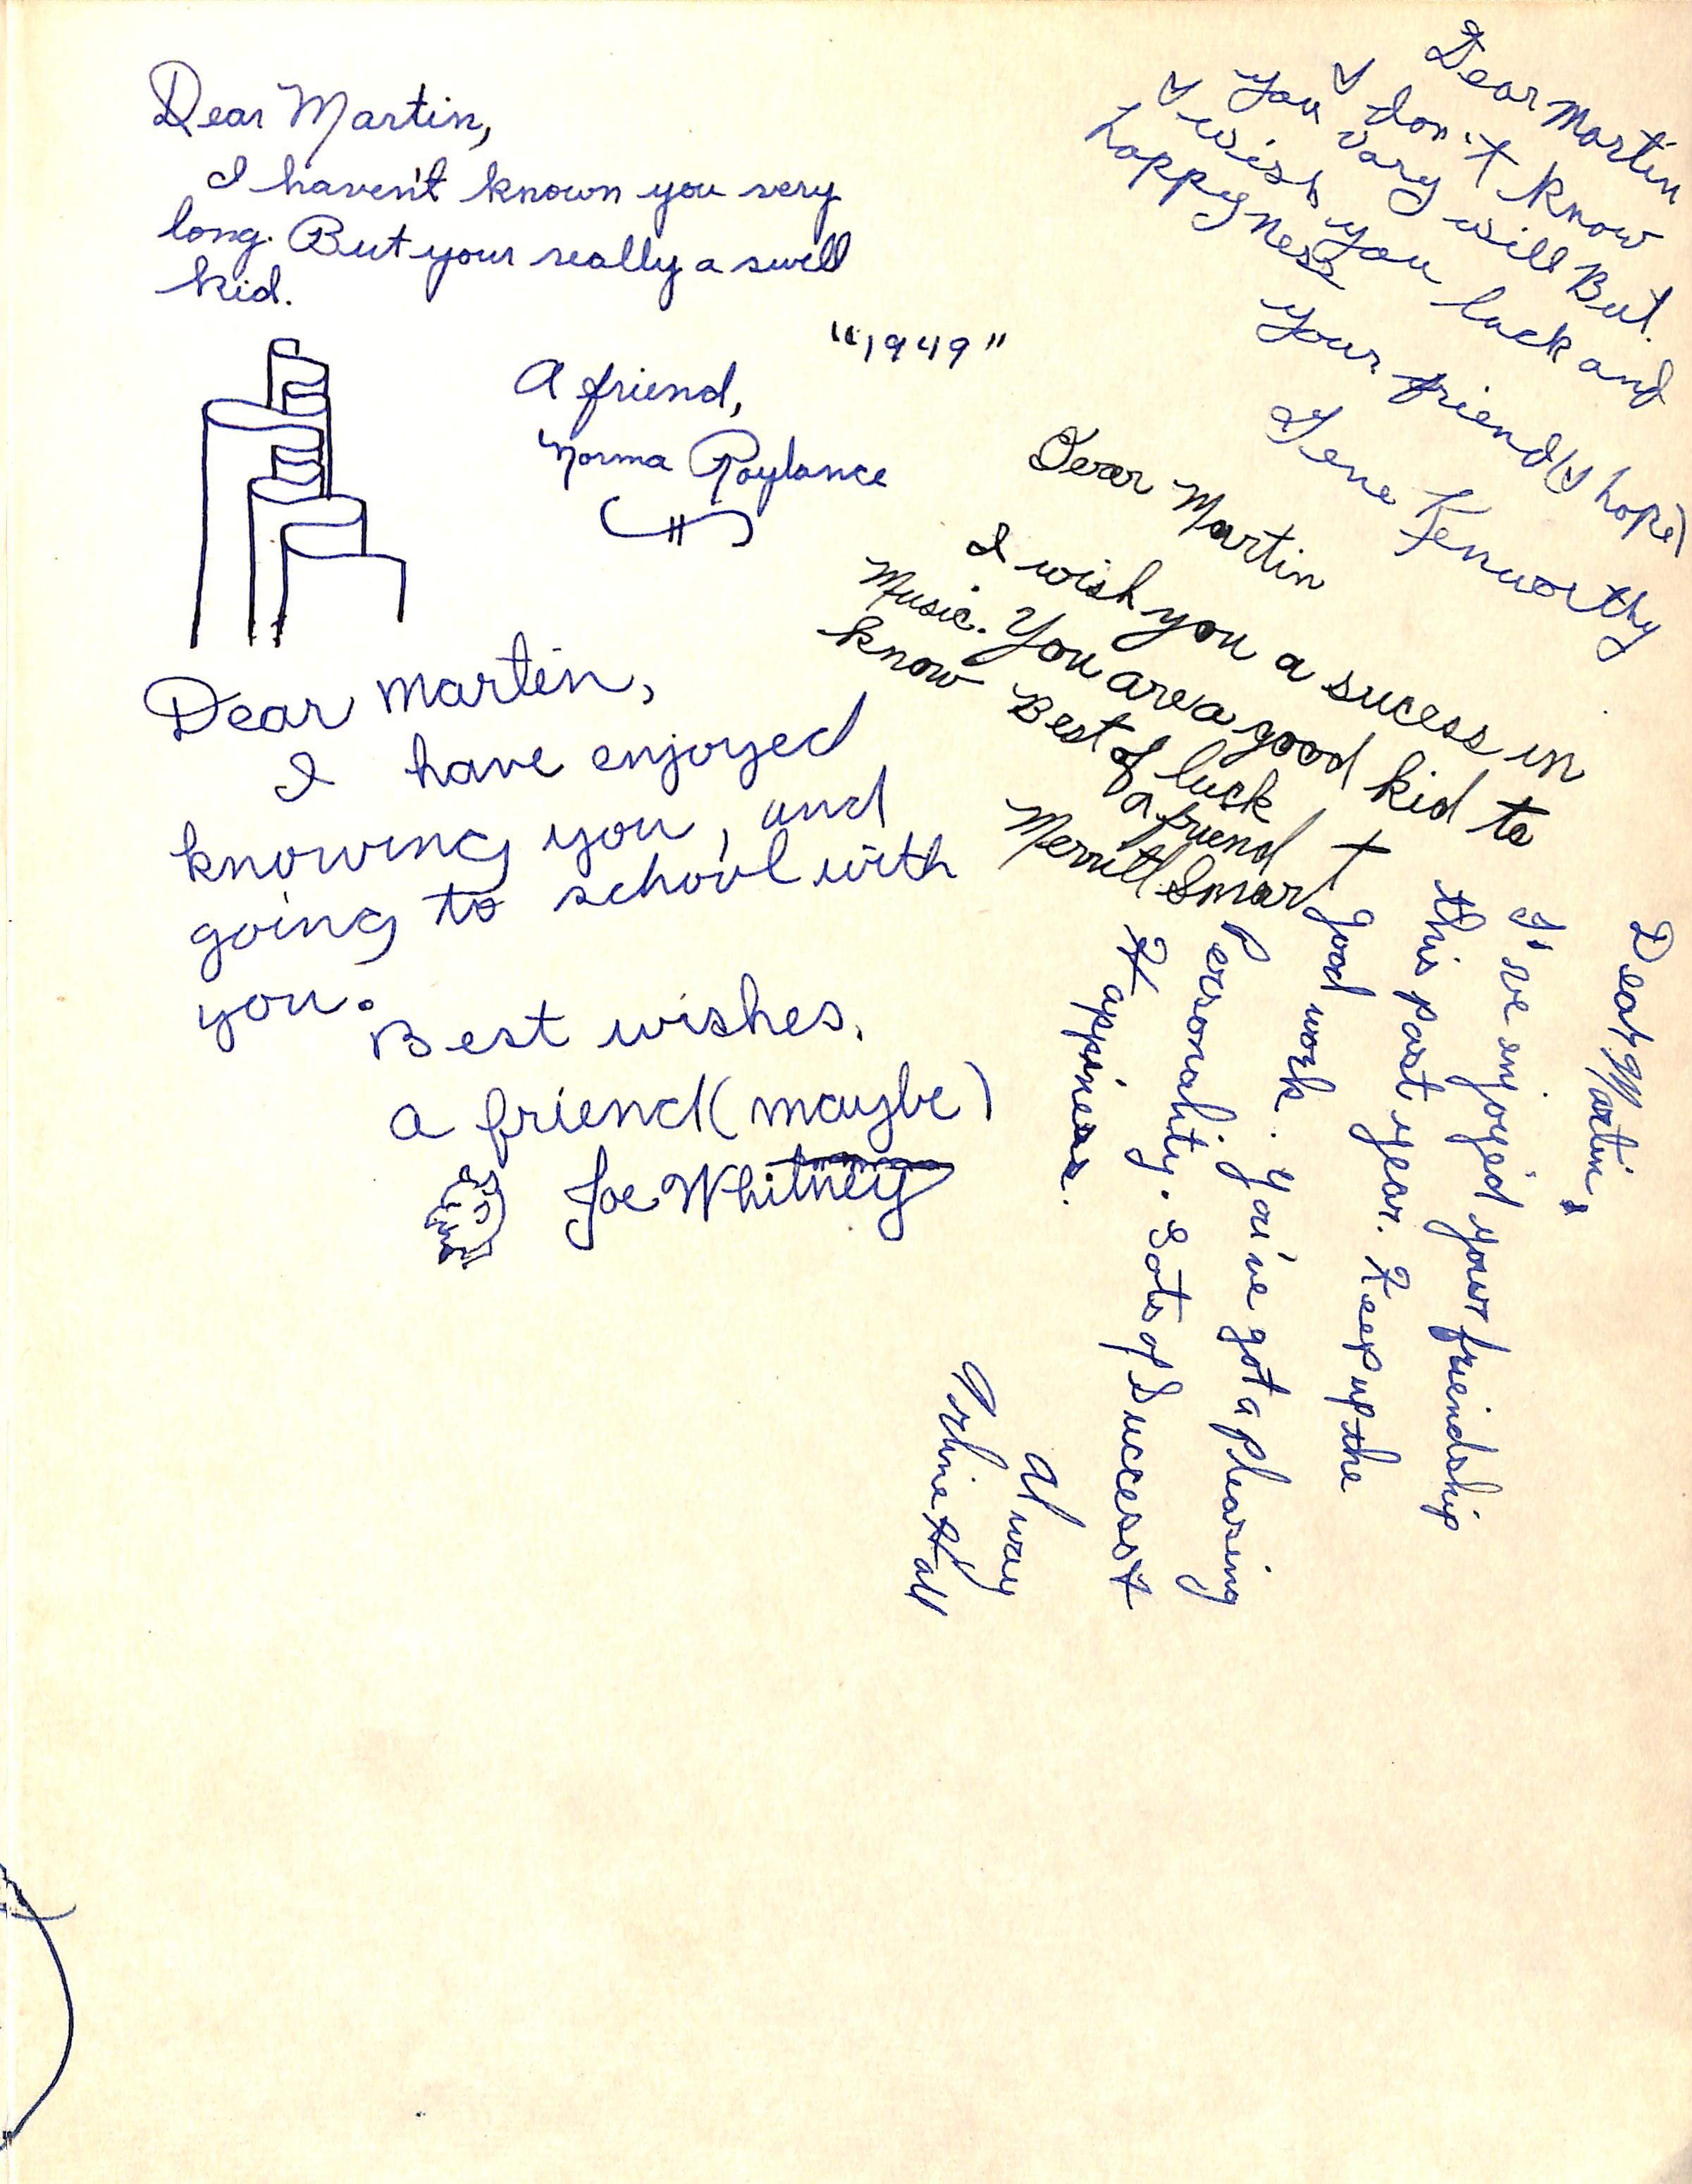 Dear Martin,
I haven't known you very
long. But your really a swell
kid.
"1949"
A friend,
Norma Roylance
Dear Martin
I don't know
you vary will But
I wish you luck and
happyness
your friend (I hope)
Fenworthy
Dear Martin
I wish you a sucess in
Music. You are a good kid to
know
Best of luck
a friend
Merritt Smart
Dear Martin,
I have enjoyed
knowing you, and
going to school with
you.
Best wishes.
a friend (maybe)
Joe Whitney
Dear Martin,
I've enjoyed your friendship
this past year. Keep up the
good work. You've got a pleasing
Personality. Lots of Success &
Happiness.
Alway
Hall